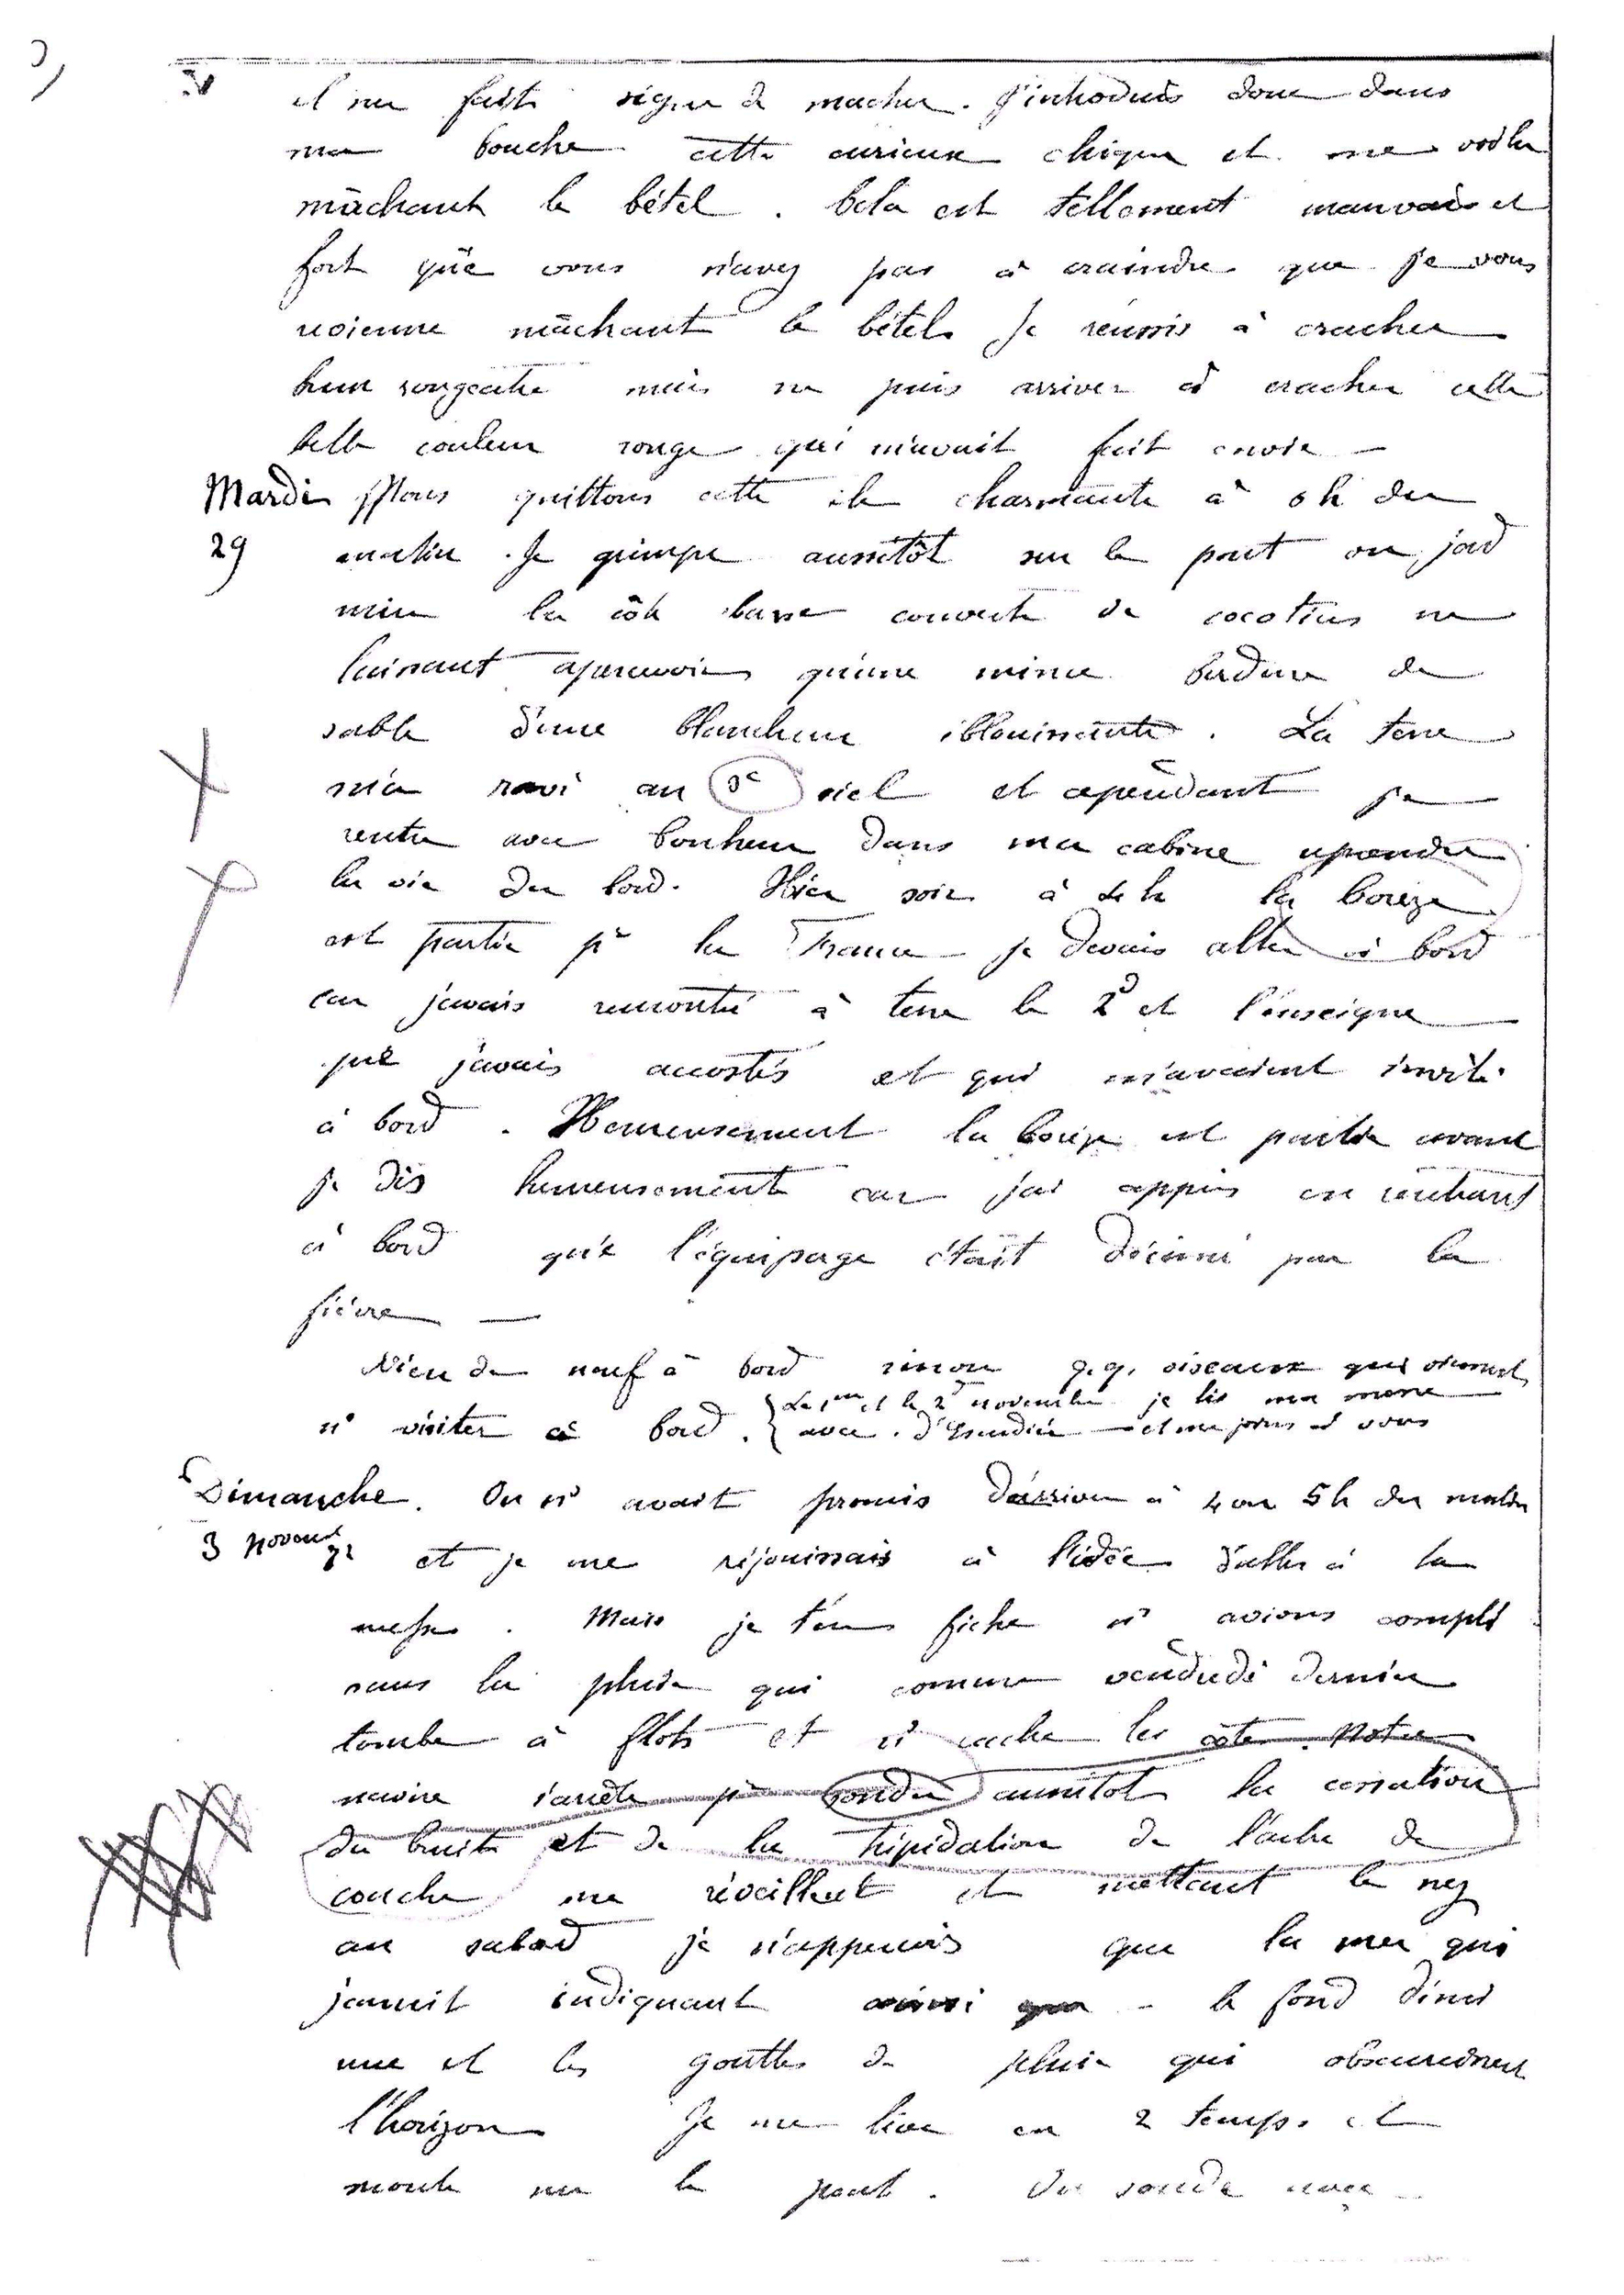 il me fait signe de macher. J'introduis donc dans
ma bouche cette curieuse chique et me voila
mâchant le bétel. Cela est tellement mauvais et
fort que vous n'avez pas à craindre que je vous
revienne mâchant le bétel. Je réussis à cracher
rougeatre mais ne puis arriver à cracher cette
belle couleur rouge qui m'avait fait envie —
Mardi Nous quittons cette ile charmante à 6h du
29 matin. Je grimpe aussitôt sur le pont ou j'ad
mire la côte basse couverte de cocotiers ne
laissant apercevoir qu'une mince bordure de
sable d'une blancheur éblouissante. La terre
m'a ravi au 3e ciel et cependant je
rentre avec bonheur dans ma cabine reprendre
la vie du bord. Hier soir à 4h la Corrèze
est partie pr la France — je devais aller à bord
car j'avais rencontré à terre le 2d et l'enseigne
que j'avais accostés et qui m'avaient invité
à bord. Heureusement la Corrèze est partie avant
je dis heureusement car j'ai appris en rentrant
à bord que l'équipage était décimé par la
fièvre —
Rien de neuf à bord sinon q.q. oiseaux qui viennent
ns visiter à bord. { Le 1er et le 2 novembre je lis ma messe
avec — et me joins à vous
Dimanche. On ns avait promis d'arriver à 4 ou 5h du matin
3 novembre et je me réjouissais à l'idée d'aller à la
messe. Mais je t'en fiche ns avions compté
sans la pluie qui comme vendredi dernier
tombe à flots et ns cache les côtes. Notre
navire s'arrête pr sonder aussitot la cessation
du bruit et de la trépidation de l'arbre de
couche me réveillent et mettant le nez
au sabord je n'apperçois que la mer qui
jaunit indiquant ainsi que — le fond dimi
nue et les gouttes de pluie qui obscurcissent
l'horizon Je me lève en 2 temps et
monte sur le pont. On sonde avec